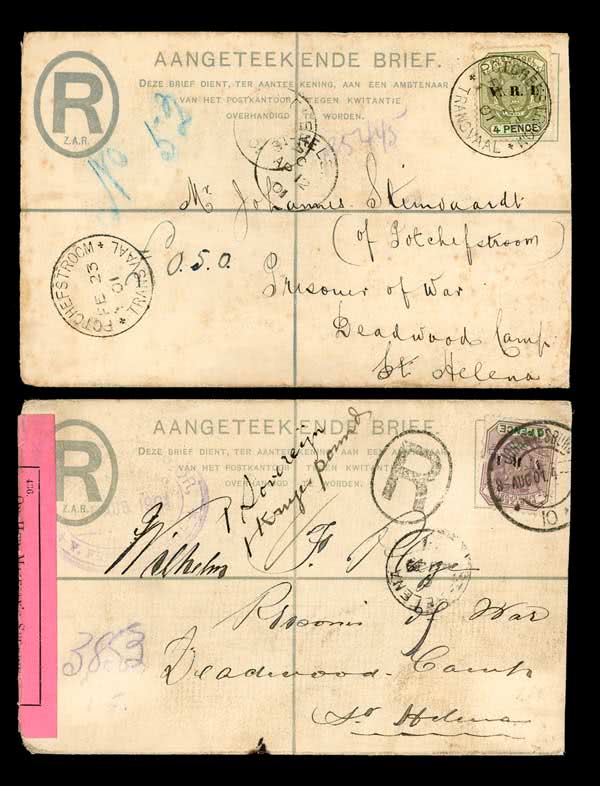 AANGETEEKENDE BRIEF.
DEZE BRIEF DIENT, TER AANTEEKENING, AAN EEN AMBTENAAR
VAN HET POSTKANTOOR TEGEN KWITANTIE
OVERHANDIGD TE WORDEN.
R
Z.A.R.
No 52
POTCHEFSTROOM
TRANSVAAL
V.R.I.
4 PENCE
AP 12
01
Mr Johannes Steinvaardt
(of Potchefstroom)
O.S.O.
Prisoner of War
Deadwood Camp
St. Helena
POTCHEFSTROOM
FE 23
01
TRANSVAAL
AANGETEEKENDE BRIEF.
DEZE BRIEF DIENT, TER AANTEEKENING, AAN EEN AMBTENAAR
VAN HET POSTKANTOOR TEGEN KWITANTIE
TE WORDEN.
R
Z.A.R.
1 Sovereign
1 Kruger pound
R
PENCE
8 AUG 01
10
Wilhelm F.
Prisonis of War
3853
Deadwood Camp
St Helena